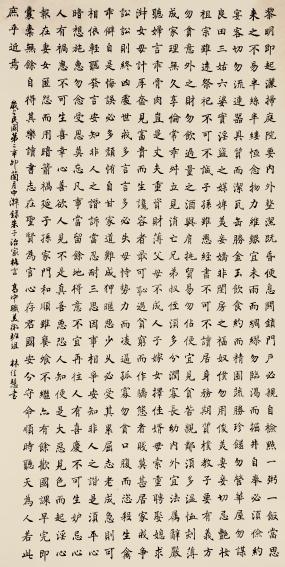 黎明即起灑掃庭院要內外整潔既昏便息關鎖門戶必親自檢點一粥一飯當思
來之不易半絲半縷恆念物力維艱宜未雨而綢繆勿臨渴而掘井自奉必須儉約
宴客切勿流連器具質而潔瓦缶勝金玉飲食約而精園蔬勝珍饈勿營華屋勿謀
良田三姑六婆實淫盜之媒婢美妾嬌非閨房之福奴僕勿用俊美妻妾切忌艷妝
祖宗雖遠祭祀不可不誠子孫雖愚經書不可不讀居身務期質樸教子要有義方
勿貪意外之財勿飲過量之酒與肩挑貿易勿佔便宜見貧苦親鄰須多溫恤刻薄
成家理無久享倫常乖舛立見消亡兄弟叔侄須多分潤寡長幼內外宜法屬辭嚴
聽婦言乖骨肉豈是丈夫重資財薄父母不成人子嫁女擇佳婿毋索重聘娶媳求
淑女毋計厚奩見富貴而生讒容者最可恥遇貧窮而作驕態者賤莫甚居家戒爭
訟訟則終凶處世戒多言言多必失毋恃勢力而凌逼孤寡勿貪口腹而恣殺生禽
乖僻自是悔誤必多頹惰自甘家道難成狎昵惡少久必受其累屈志老成急則可
相依輕聽發言安知非人之譖訴當忍耐三思因事相爭安知非人之譖須平心
暗想施惠勿念受恩莫忘凡事當留餘地得意不宜再往人有喜慶不可生妒忌心
人有禍患不可生喜幸心善欲人見不是真善惡恐人知便是大惡見色而起淫心
報在妻女匿怨而用暗箭禍延子孫家門和順雖饔飧不繼亦有餘歡國課早完即
囊橐無餘自得其樂讀書志在聖賢為官心存君國安分守命順時聽天為人若此
庶乎近焉
歲之民國第二辛卯閏月中澣錄朱子治家格言 高中職美術班組 林佳慧書